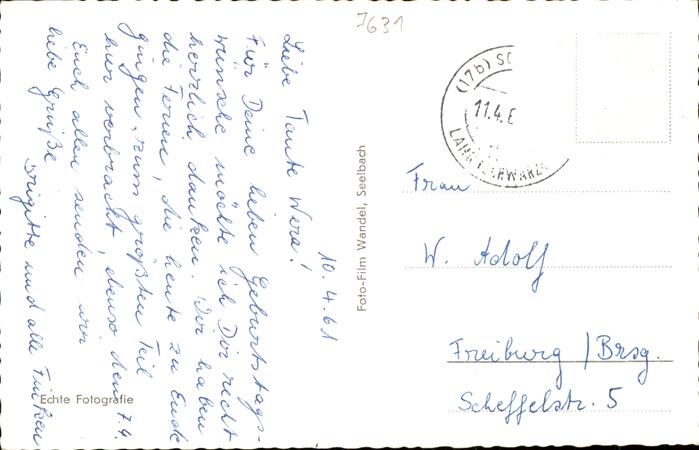 7631
10.4.61
Liebe Tante Wera!
Für Deine lieben Geburtstags-
wünsche möchte ich Dir recht
herzlich danken. Wir haben
die Ferien, die heute zu Ende
gingen, zum größten Teil
hier verbracht, ebenso den 7.4.
Euch allen senden wir
liebe Grüße
Brigitte und alle Finken
Echte Fotografie
Foto-Film Wandel, Seelbach
(17b) SC
11.4.6
LAHR (SCHWARZW
Frau
W. Adolf
Freiburg / Brsg.
Scheffelstr. 5